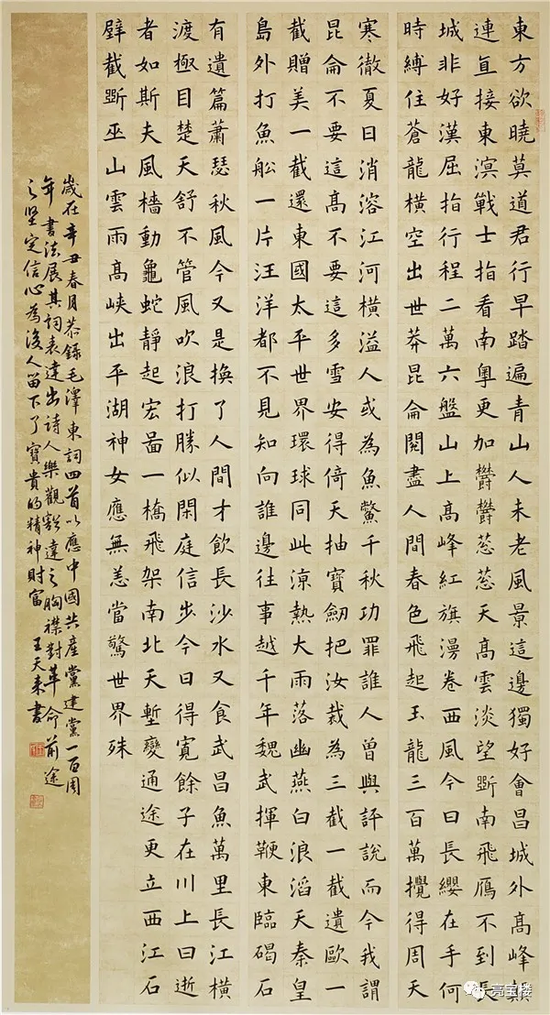 東方欲曉莫道君行早踏遍青山人未老風景這邊獨好會昌城外高峰顛
連直接東溟戰士指看南粵更加鬱鬱葱葱天高雲淡望斷南飛雁不到長
城非好漢屈指行程二萬六盤山上高峰紅旗漫卷西風今日長纓在手何
時縛住蒼龍橫空出世莽昆侖閱盡人間春色飛起玉龍三百萬攪得周天
寒徹夏日消溶江河橫溢人或為魚鱉千秋功罪誰人曾與評說而今我謂
昆侖不要這高不要這多雪安得倚天抽寶劒把汝裁為三截一截遺歐一
截贈美一截還東國太平世界環球同此涼熱大雨落幽燕白浪滔天秦皇
島外打魚船一片汪洋都不見知向誰邊往事越千年魏武揮鞭東臨碣石
有遺篇蕭瑟秋風今又是換了人間才飲長沙水又食武昌魚萬里長江橫
渡極目楚天舒不管風吹浪打勝似閑庭信步今日得寬餘子在川上曰逝
者如斯夫風檣動龜蛇靜起宏啚一橋飛架南北天塹變通途更立西江石
壁截斷巫山雲雨高峽出平湖神女應無恙當驚世界殊
歲在辛丑春月恭錄毛澤東詞四首以應中國共產黨建黨一百周
年書法展其詞表達出詩人樂觀豁達之胸襟對革命前途
之堅定信心為後人留下了寶貴的精神財富 王天來書
亮宝楼